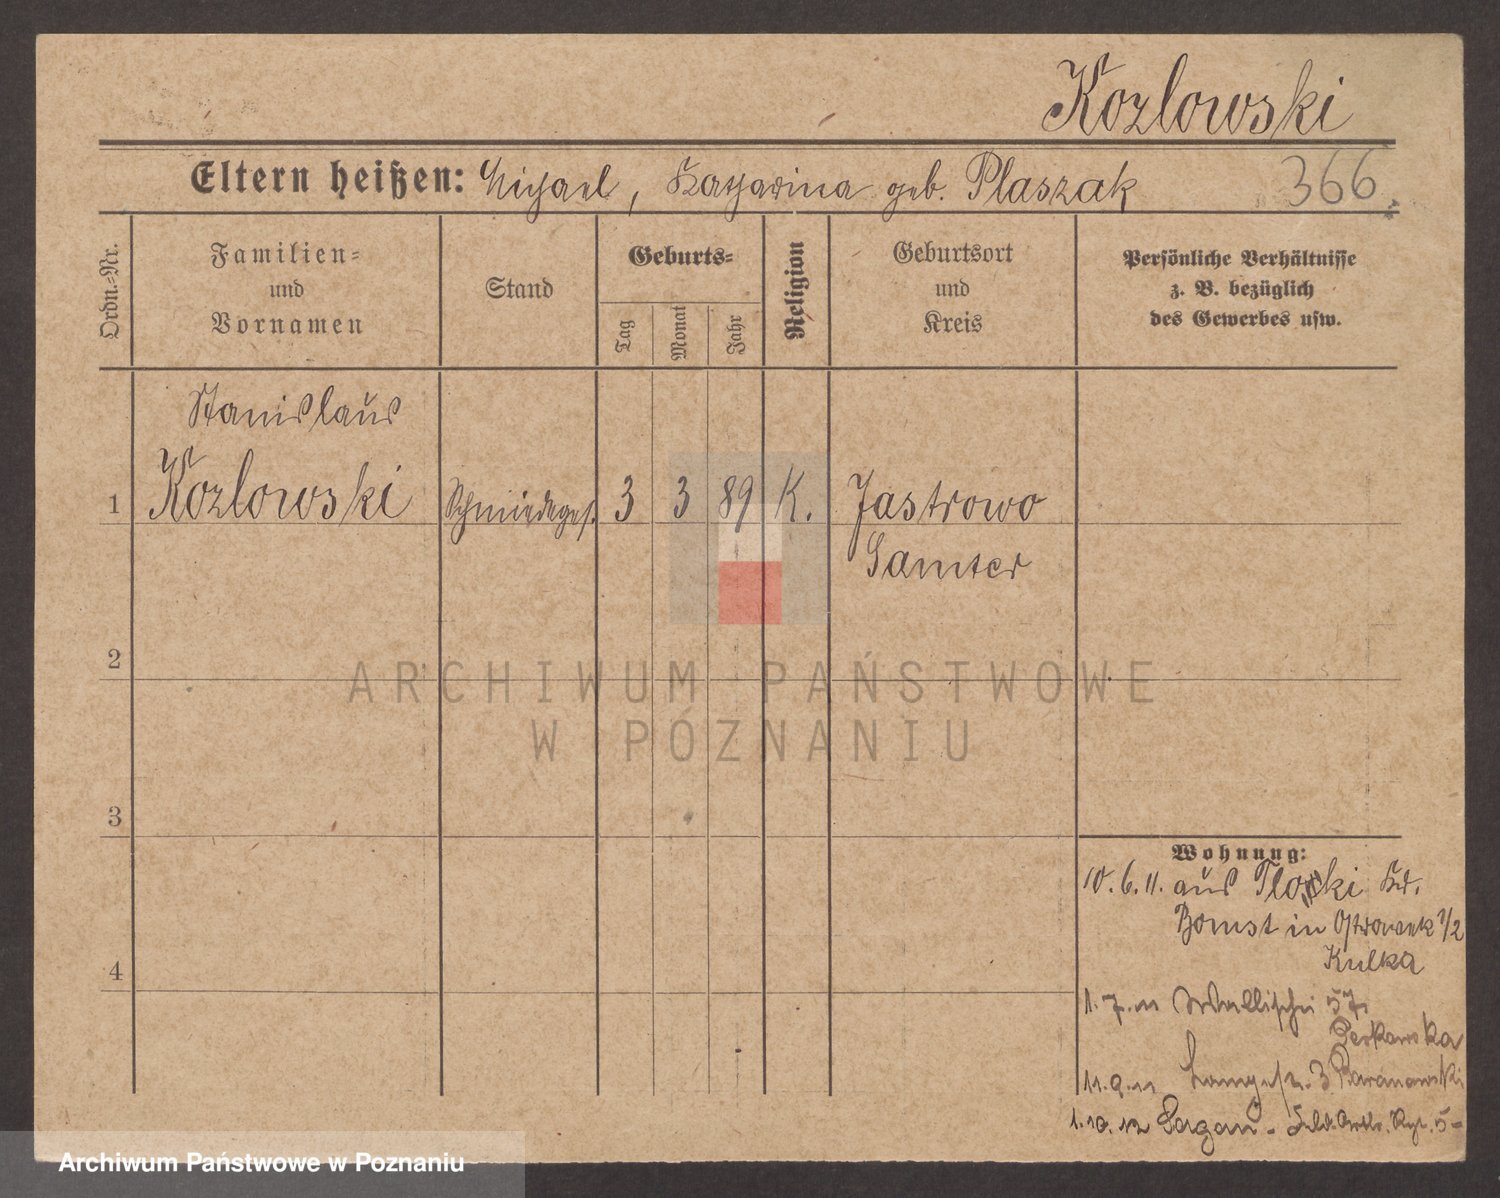 Kozlowski
Eltern heißen: Michael, Katharina geb. Plaszak
366.
Ordn.-Nr.
Familien-
und
Vornamen
Stand
Geburts-
Tag
Monat
Jahr
Religion
Geburtsort
und
Kreis
Persönliche Verhältnisse
z. B. bezüglich
des Gewerbes usw.
Stanislaus
1 Kozlowski Schmiedeges. 3 3 89 K. Jastrowo
Samter
2
3
4
Wohnung:
10.6.11. aus Kr.
Bomst in Ostrowek 1/2
Kulka
1.7.11 Wallischei 57
Perkowska
11.9.11 Langestr. 3 Baranowski
1.10.12 Sagan - Feld. Artlr. Rgt. 5-
ARCHIWUM PAŃSTWOWE
W POZNANIU
Archiwum Państwowe w Poznaniu